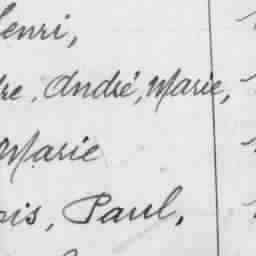 Henri,
re, André, Marie,
Marie
ois, Paul,